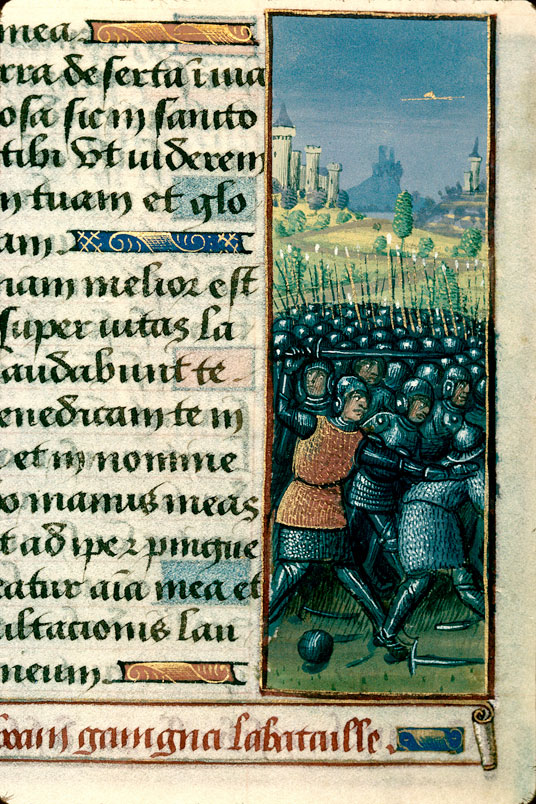 mea
rra deserta ī uia
osa sic in sancto
tibi Vt uiderem
m tuam et glo
am
niam melior est
super uitas la
audabunt te.
enedicam te in
et in nomine
o manus meas
t adipe ⁊ pingue
eatur aīa mea et
ultacionis lau
meum
gaingna la bataille